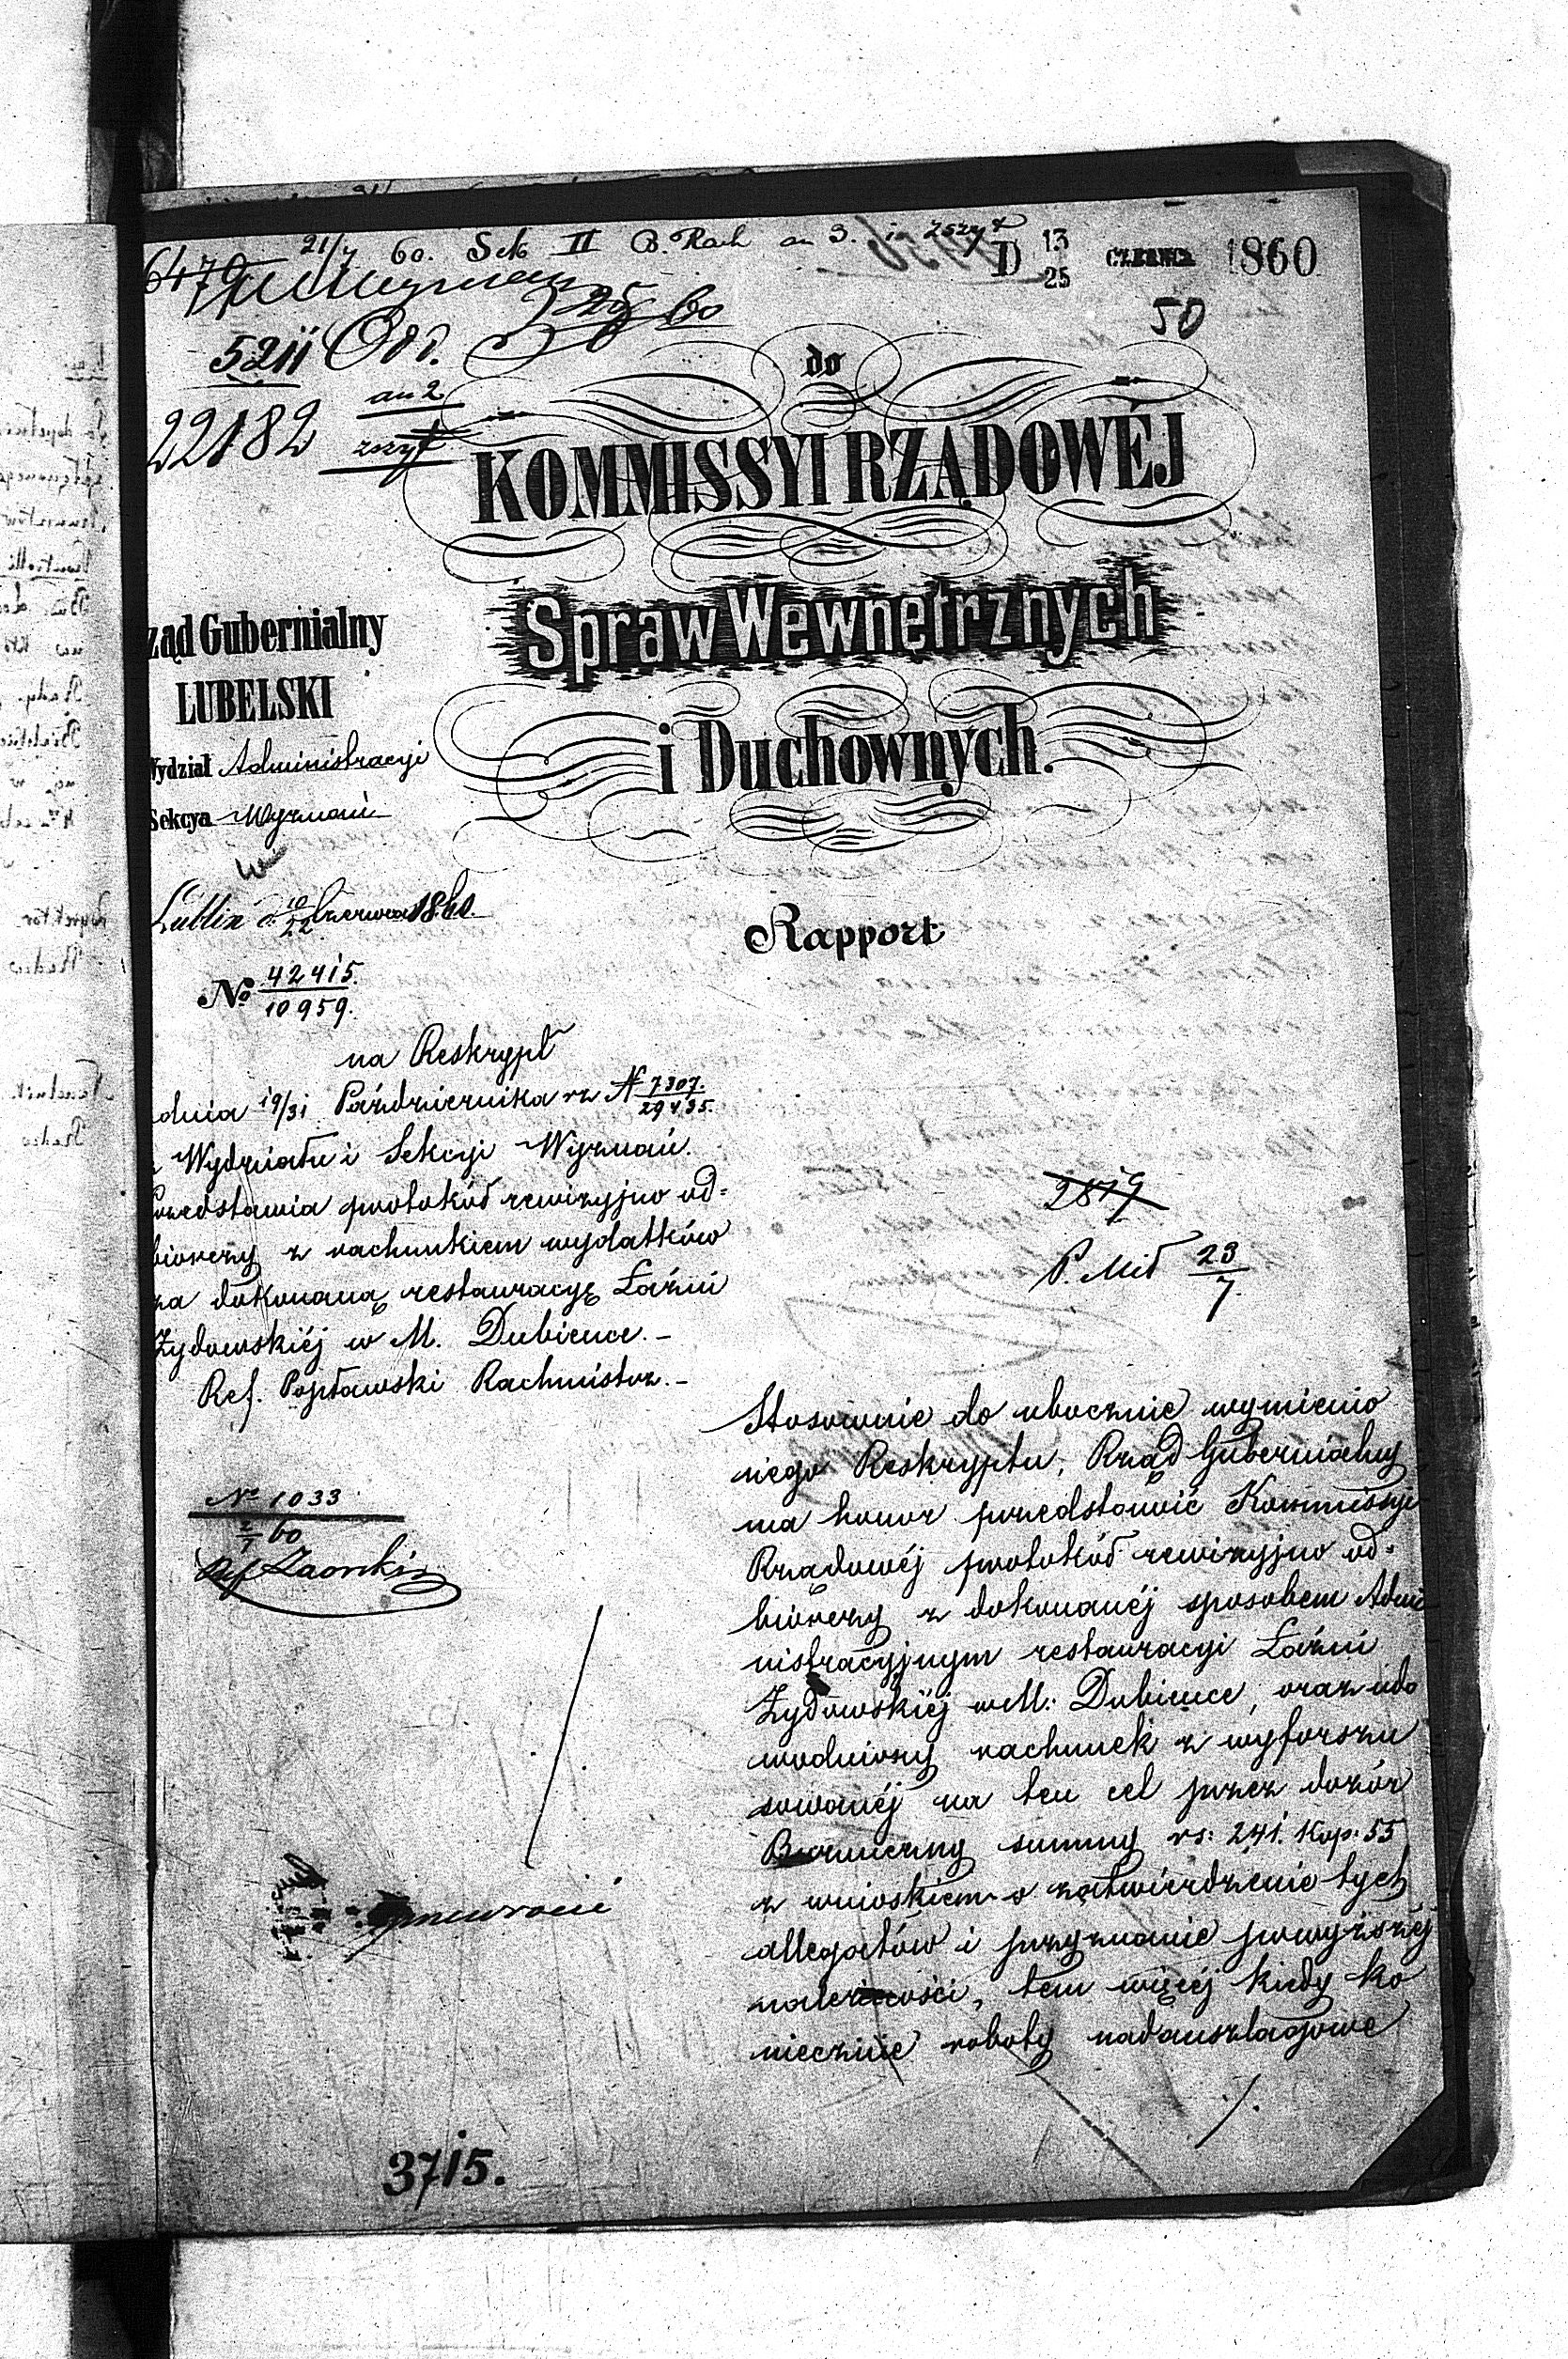 21/7 60. Sek II B. Rach an 3. in zszyt
D 13/25 CZERWCA 1860
6479
50
5211 Odd.
25/6 60
22182 an 2 zszyt
do
KOMMISSYI RZĄDOWÉJ
Spraw Wewnętrznych
i Duchownych.
ząd Gubernialny
LUBELSKI
Wydział Administracyi
Sekcya Wyznań
Lublin d. 10/22 Czerwca 1860.
Rapport
No 42415./10959.
na Reskrypt
dnia 19/31 Października rz N 7307./29435.
Wydziału i Sekcyi Wyznań.
Przedstawia protokół rewizyjno od=
biorczy z rachunkiem wydatków
za dokonaną restauracyę Łaźni
Żydowskiéj w M. Dubience.-
Ref. Popławski Rachmistrz.-
2879
P. Mił 23/7.
No 1033
2/7 60
Stosownie do ubocznie wymienio
nego Reskryptu, Rząd Gubernialny
ma honor przedstawić Kommissyi
Rządowéj protokół rewizyjno od=
biorczy z dokonanéj sposobem Admi
nistracyjnym restauracyi Łaźni
Żydowskiéj w M: Dubience, oraz udo
wodniony rachunek z wyforszu
sowanéj na ten cel przez dozór
Bozniczny summy rs: 241. Kop: 55
z wnioskiem o zatwierdzenie tych
allegatów i przyznanie powyższéj
należności, tem więcéj kiedy ko
nieczne roboty nadanszlagowe
./.
3715.